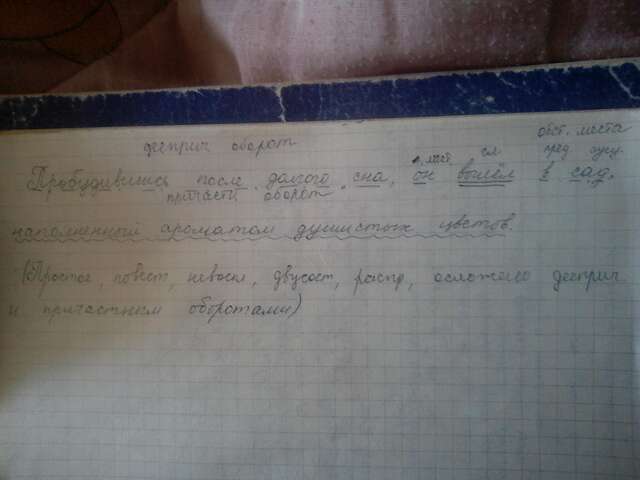 дееприч оборот
обст. места
мест гл пред сущ.
Пробудившись после долгого сна, он вышел в сад,
причасти оборот
наполненный ароматом душистых цветов.
(Простое, повест, невоскл, двусост, распр, осложнено дееприч
и причастным оборотами)